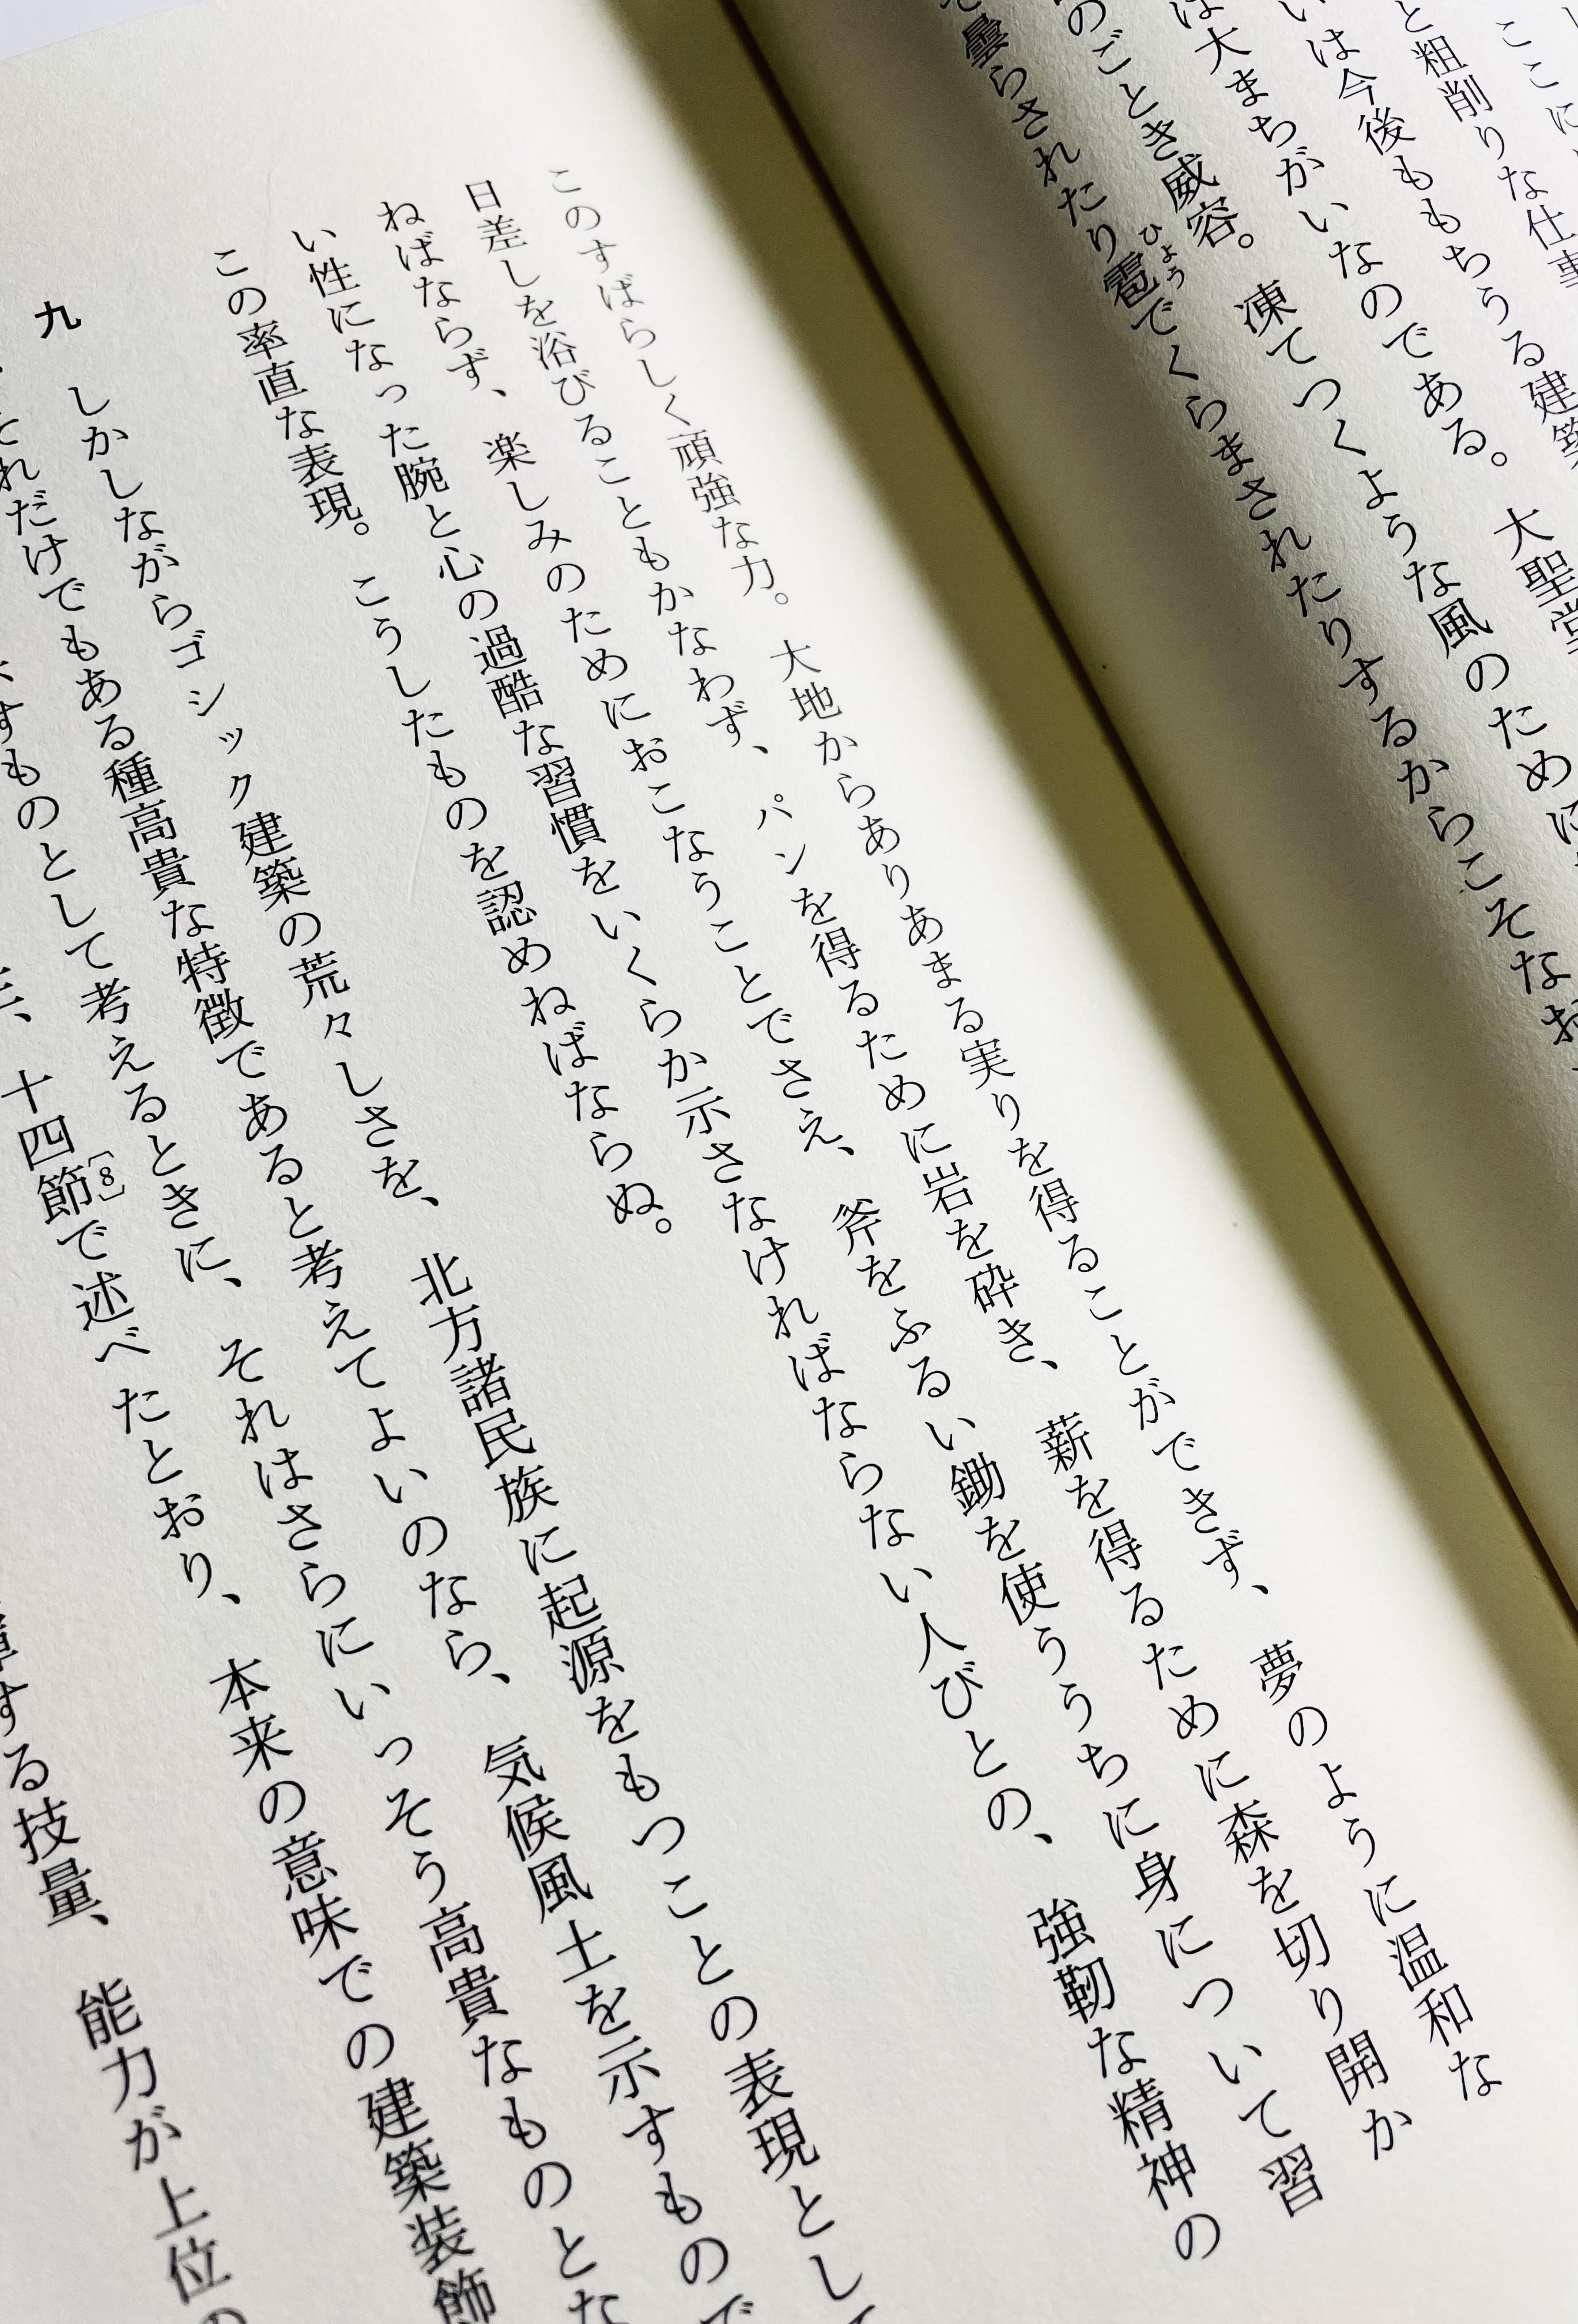 ここに
と粗削りな仕事
いは今後ももちうる建築
は大まちがいなのである。大聖堂
のごとき威容。凍てつくような風のために
曇らされたり雹でくらまされたりするからこそなお
ひょう
このすばらしく頑強な力。大地からありあまる実りを得ることができず、夢のように温和な
日差しを浴びることもかなわず、パンを得るために岩を砕き、薪を得るために森を切り開か
ねばならず、楽しみのためにおこなうことでさえ、斧をふるい鋤を使ううちに身について習
い性になった腕と心の過酷な習慣をいくらか示さなければならない人びとの、強靭な精神の
この率直な表現。こうしたものを認めねばならぬ。
九　しかしながらゴシック建築の荒々しさを、北方諸民族に起源をもつことの表現として
それだけでもある種高貴な特徴であると考えてよいのなら、気候風土を示すもので
すものとして考えるときに、それはさらにいっそう高貴なものとな
十四節〔8〕で述べたとおり、本来の意味での建築装飾
する技量、能力が上位の